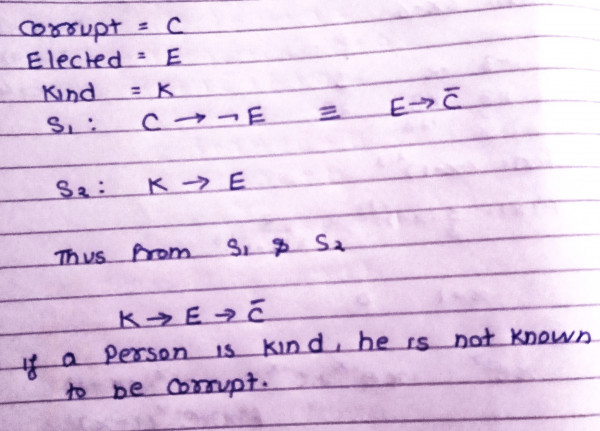 Corrupt = C
Elected = E
Kind = K
S₁ : C → ¬ E ≡ E → C̅
S₂ : K → E
Thus from S₁ & S₂
K → E → C̅
if a person is kind, he is not known
to be corrupt.